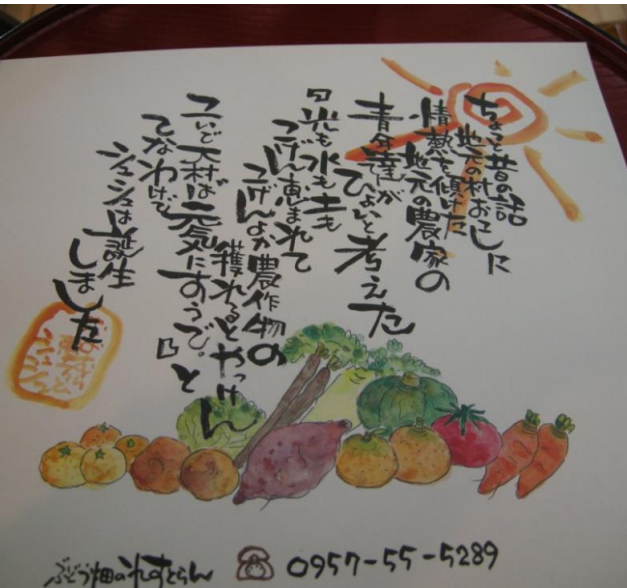 ちょこっと昔の話
地元の村おこしに
情熱を傾けた
地元の農家の
青年達が
ひょいと考えた
「日光も水も土も
こげん恵まれて
こげんよか農作物の
獲れるとやっけん
こいで大村ば元気にすうで。」と
てなわけで
シュシュは誕生
しました
ぶどう畑のれすとらん ☎ 0957-55-5289